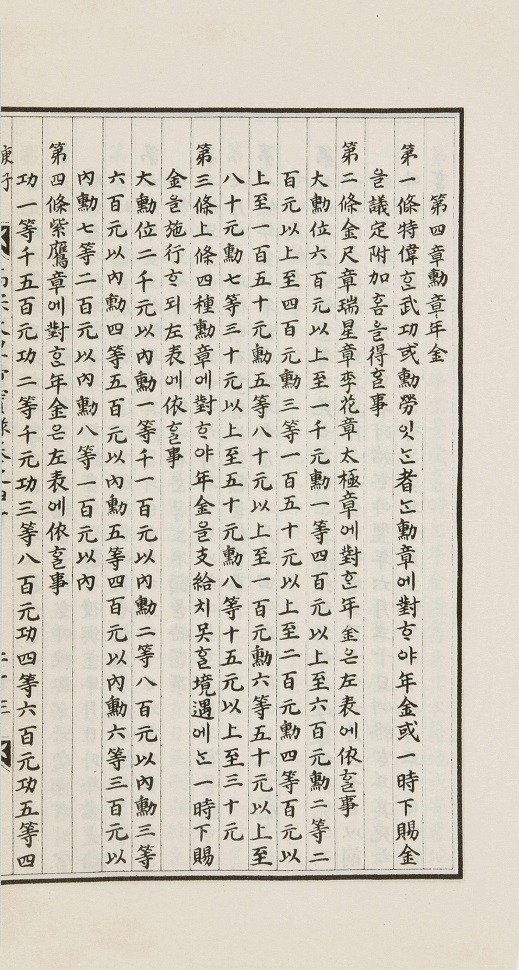 第四章勳章年金
第一條特偉ᄒᆞᆫ武功或勳勞잇ᄂᆞᆫ者ᄂᆞᆫ勳章에對ᄒᆞ야年金或一時下賜金
을議定附加홈을得ᄒᆞᆯ事
第二條金尺章瑞星章李花章太極章에對ᄒᆞᆫ年金은左表에依ᄒᆞᆯ事
大勳位六百元以上至一千元勳一等四百元以上至六百元勳二等二
百元以上至四百元勳三等一百五十元以上至二百元勳四等百元以
上至一百五十元勳五等八十元以上至一百元勳六等五十元以上至
八十元勳七等三十元以上至五十元勳八等十五元以上至三十元
第三條上條四種勳章에對ᄒᆞ야年金을支給치못ᄒᆞᆯ境遇에ᄂᆞᆫ一時下賜
金을施行ᄒᆞ되左表에依ᄒᆞᆯ事
大勳位二千元以內勳一等千一百元以內勳二等八百元以內勳三等
六百元以內勳四等五百元以內勳五等四百元以內勳六等三百元以
內勳七等二百元以內勳八等一百元以內
第四條紫鷹章에對ᄒᆞᆫ年金은左表에依ᄒᆞᆯ事
功一等千五百元功二等千元功三等八百元功四等六百元功五等四